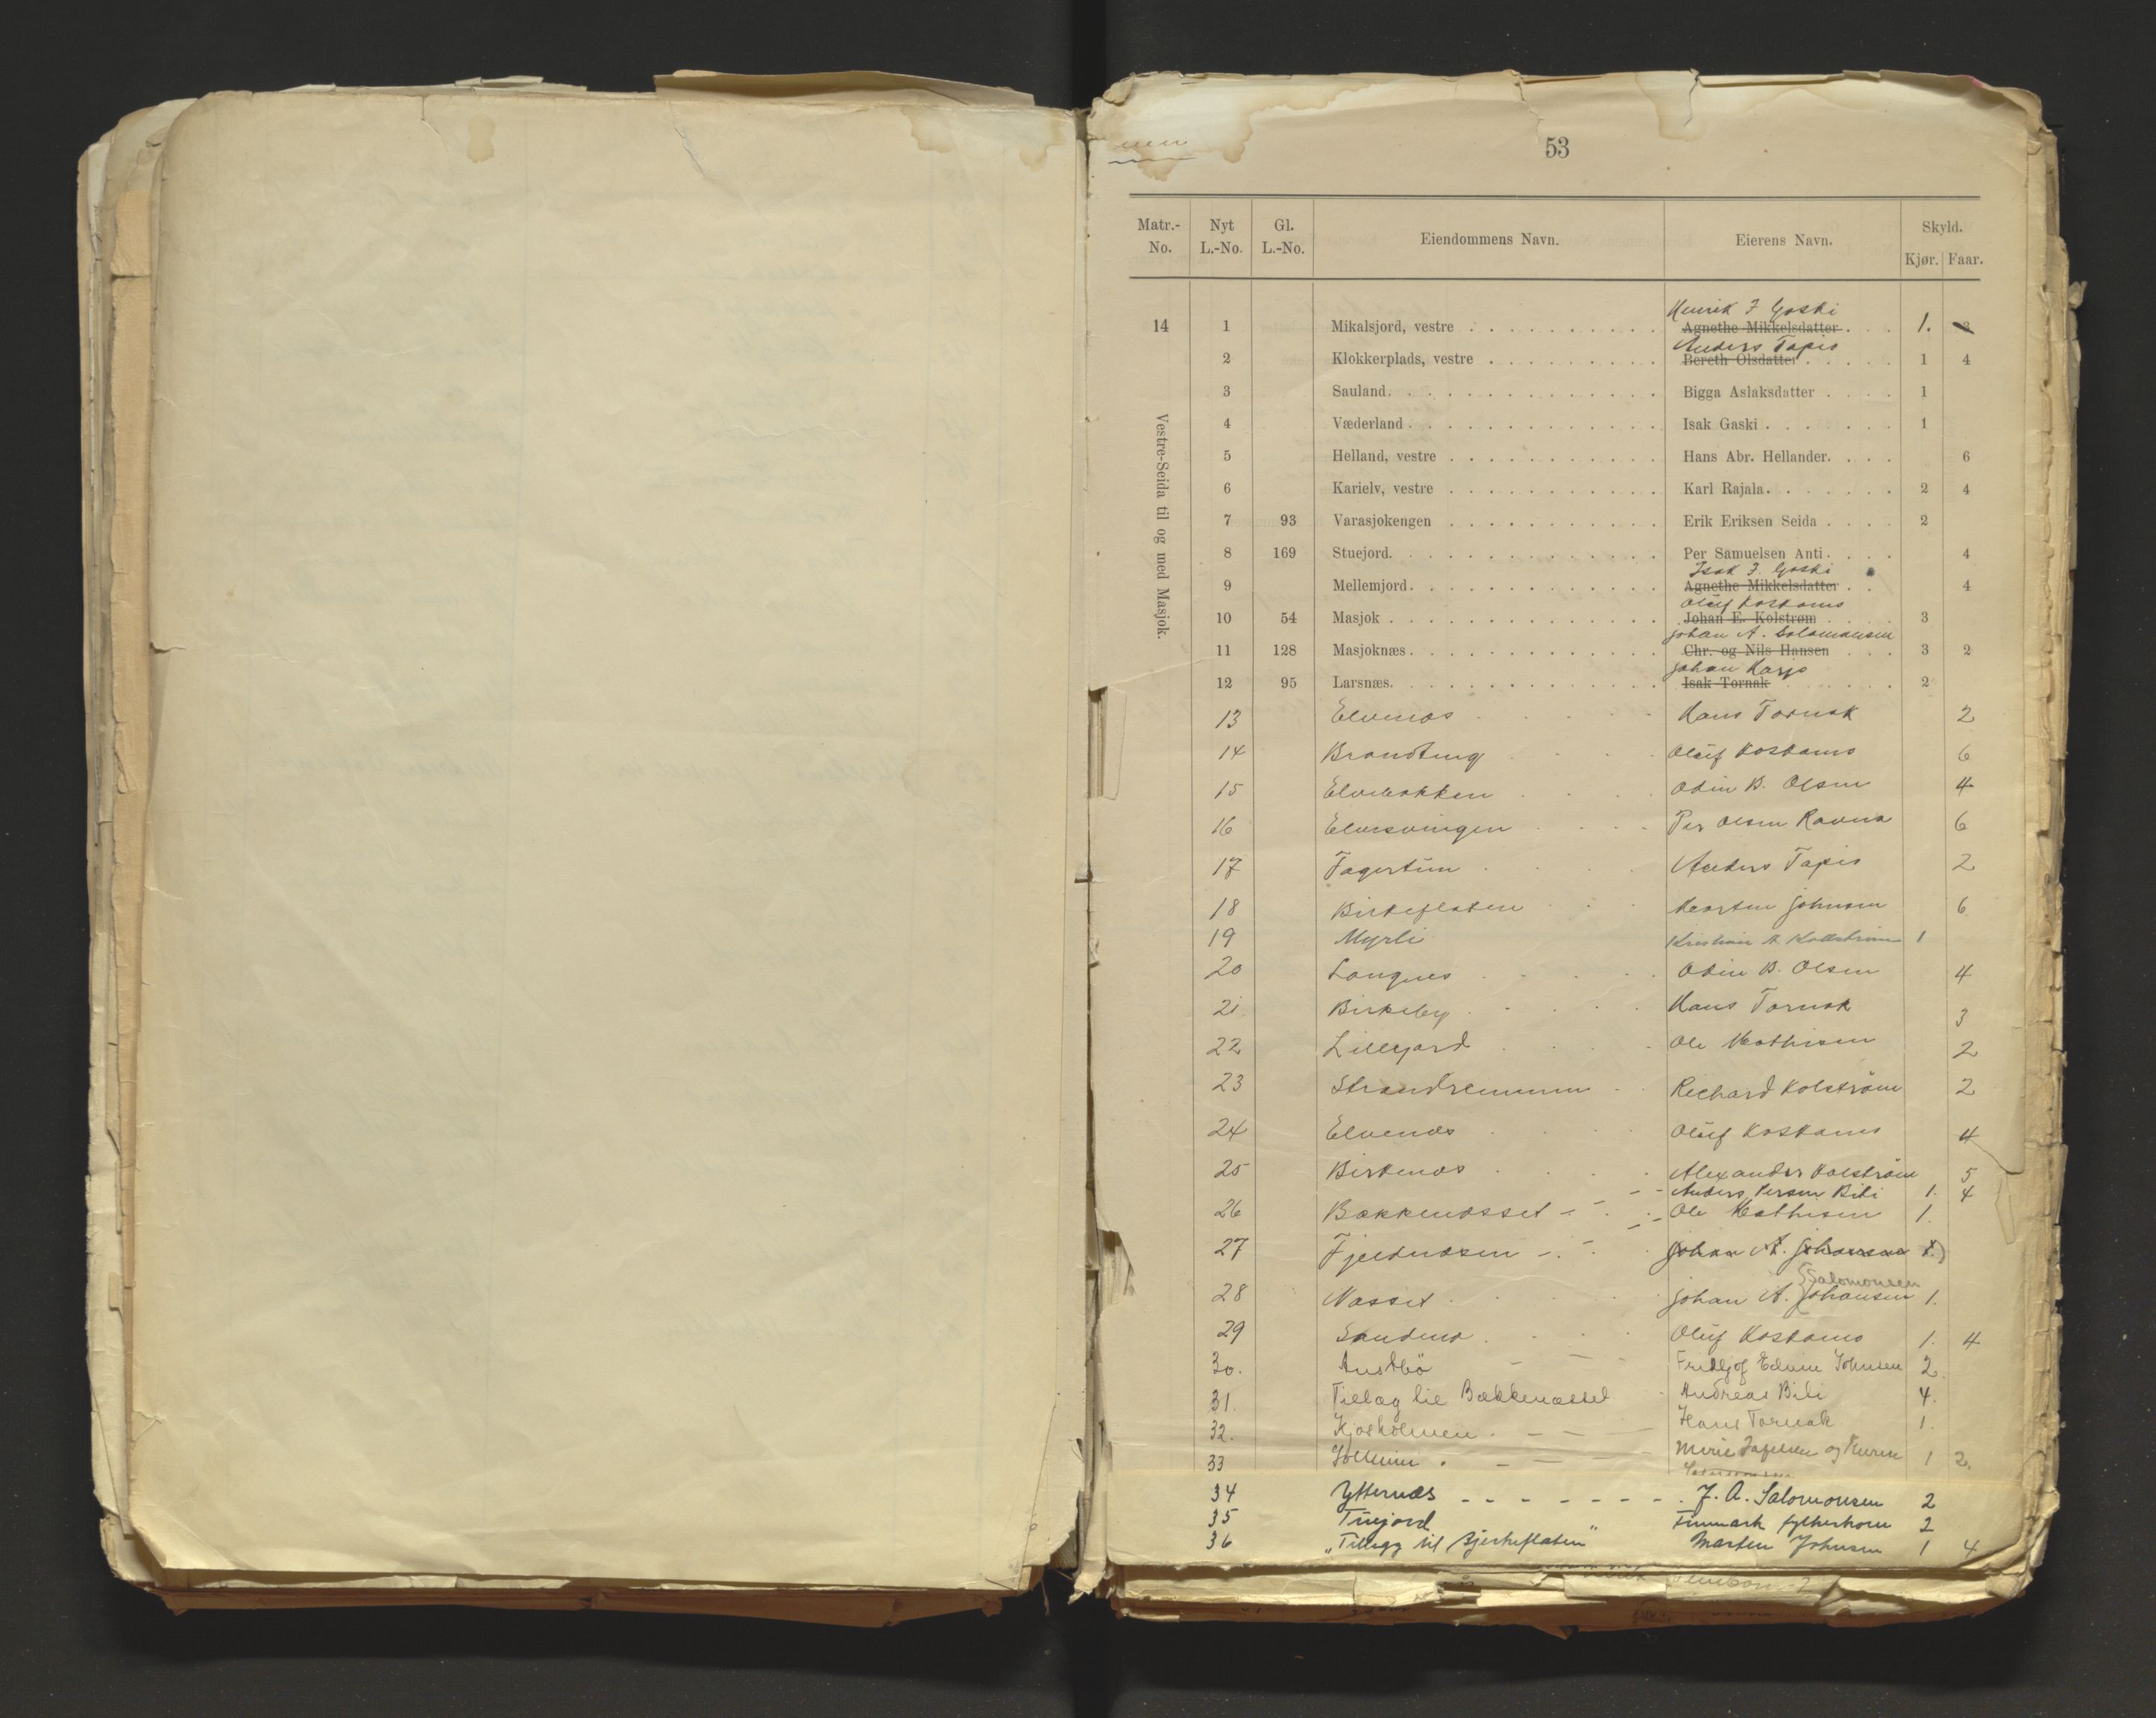 53
Matr.-No. Nyt L.-No. Gl. L.-No. Eiendommens Navn. Eierens Navn. Skyld. Kjør. Faar.
Vestre-Seida til og med Masjok.
Henrik I Gaski
14 1 Mikalsjord, vestre Agnethe Mikkelsdatter 1.
Anders Tapio
2 Klokkerplads, vestre Bereth Olsdatter 1 4
3 Sauland Bigga Aslaksdatter 1
4 Væderland Isak Gaski 1
5 Helland, vestre Hans Abr. Hellander 6
6 Karielv, vestre Karl Rajala 2 4
7 93 Varasjokengen Erik Eriksen Seida 2
8 169 Stuejord Per Samuelsen Anti 4
Isak I. Gaski
9 Mellemjord Agnethe Mikkelsdatter 4
Oluf Koskamo
10 54 Masjok Johan E. Kolstrøm 3
Johan A. Salomonsen
11 128 Masjoknæs Chr. og Nils Hansen 3 2
Johan Karjo
12 95 Larsnæs Isak Tornak 2
13 Elvenæs Hans Tornak 2
14 Brandteng Oluf Koskamo 6
15 Elvebakken Odin B. Olsen 4
16 Elvesvingen Per Olsen Ravna 6
17 Fagertun Anders Tapio 2
18 Birkeflaten Morten Johnsen 6
19 Myrli Kristian A Kollström 1
20 Langnes Odin B. Olsen 4
21 Birkeby Hans Tornak 3
22 Lillegard Ole Mathisen 2
23 Strandremmen Richard Kolström 2
24 Elvenæs Oluf Koskamo 4
25 Birkenæs Alexander Kolström 5
Anders Persen Biti 1. 4
26 Bækkenæsset Ole Mathisen 1.
27 Fjeldnæsen Johan A. Johansen 1.
Salomonsen
28 Næsset Johan A. Johansen 1.
29 Sandmo Oluf Koskamo 1. 4
30. Austbö Fridtjof Edvin Johnsen 2.
31. Tillæg til Bækkenæsset Andreas Biti 4.
32. Kjosholmen Hans Tornak 1.
33 Solheim 1 2.
34 Ytternæs J. A. Salomonsen 2
35 Tiinjord Finmark fylkeskom 2
36 "Tillegg til Bjerkeflaten" Morten Johnsen 1 4